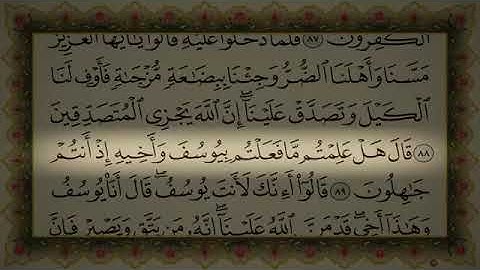 الْكَٰفِرُونَ ٨٧ فَلَمَّا دَخَلُوا۟ عَلَيْهِ قَالُوا۟ يَٰٓأَيُّهَا الْعَزِيزُ
مَسَّنَا وَأَهْلَنَا الضُّرُّ وَجِئْنَا بِبِضَٰعَةٍ مُّزْجَىٰةٍ فَأَوْفِ لَنَا
الْكَيْلَ وَتَصَدَّقْ عَلَيْنَآ ۖ إِنَّ اللَّهَ يَجْزِى الْمُتَصَدِّقِينَ
٨٨ قَالَ هَلْ عَلِمْتُم مَّا فَعَلْتُم بِيُوسُفَ وَأَخِيهِ إِذْ أَنتُمْ
جَٰهِلُونَ ٨٩ قَالُوٓا۟ أَءِنَّكَ لَأَنتَ يُوسُفُ ۖ قَالَ أَنَا۠ يُوسُفُ
وَهَٰذَآ أَخِى ۖ قَدْ مَنَّ اللَّهُ عَلَيْنَآ ۖ إِنَّهُۥ مَن يَتَّقِ وَيَصْبِرْ فَإِنَّ